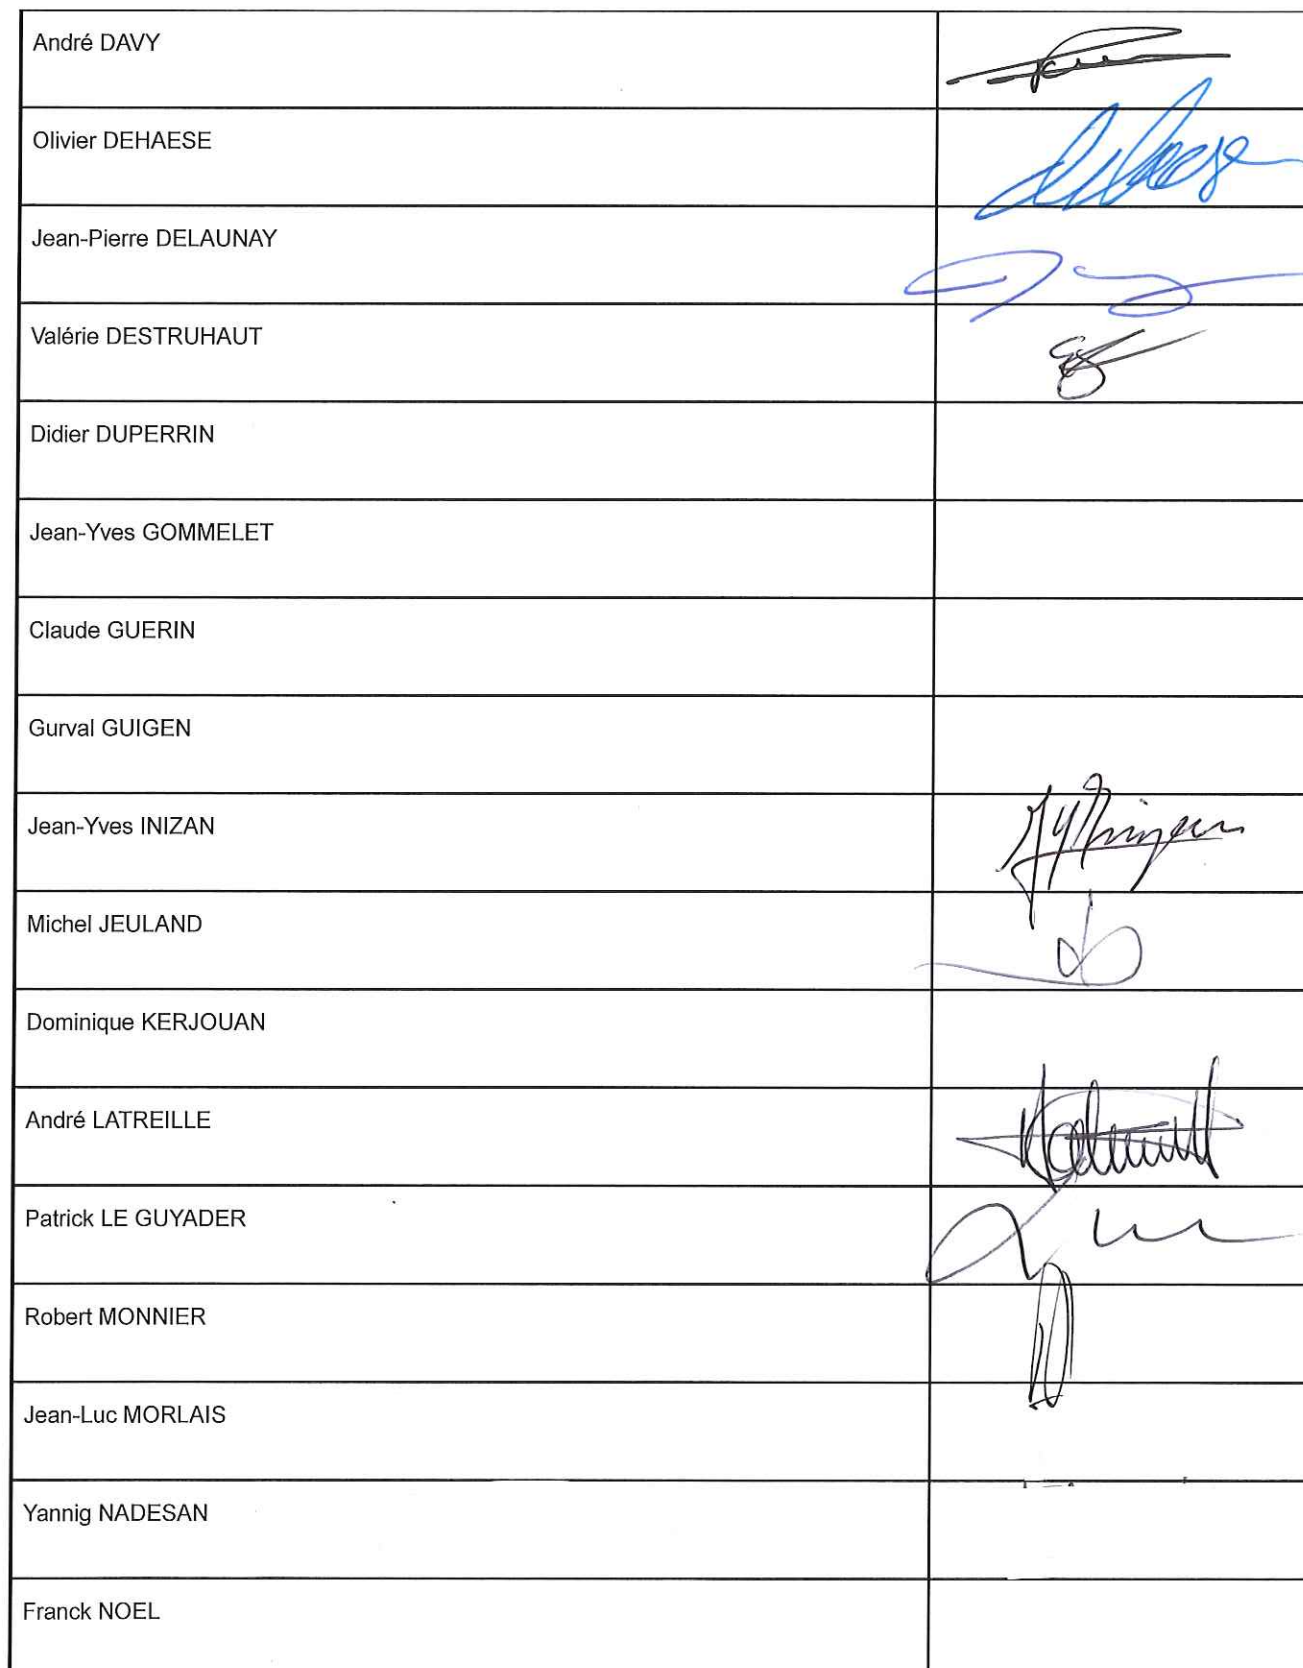 André DAVY
Olivier DEHAESE
Jean-Pierre DELAUNAY
Valérie DESTRUHAUT
Didier DUPERRIN
Jean-Yves GOMMELET
Claude GUERIN
Gurval GUIGEN
Jean-Yves INIZAN
Michel JEULAND
Dominique KERJOUAN
André LATREILLE
Patrick LE GUYADER
Robert MONNIER
Jean-Luc MORLAIS
Yannig NADESAN
Franck NOEL